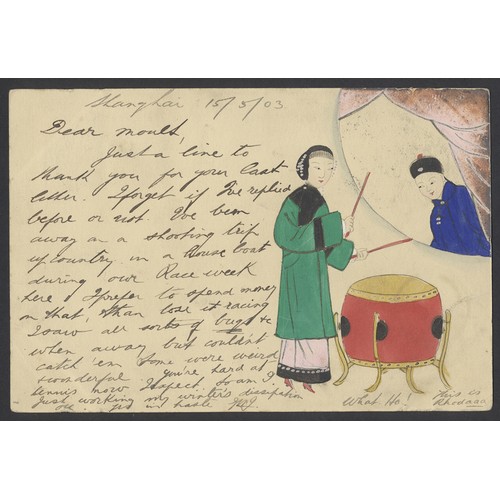 Shanghai 15/5/03
Dear Moult,
Just a line to
thank you for your last
letter. I forget if I've replied
before or not. I've been
away on a shooting trip
upcountry in a House boat
during our Race week
here I prefer to spend money
on that, than lose it racing
I saw all sorts of bugs &c
when away but couldn't
catch 'em some were weird
& wonderful you're hard at
tennis now I expect. So am I.
Just working my winter's dissipation
off. Yrs in haste
What Ho!
This is
Rhodaaa